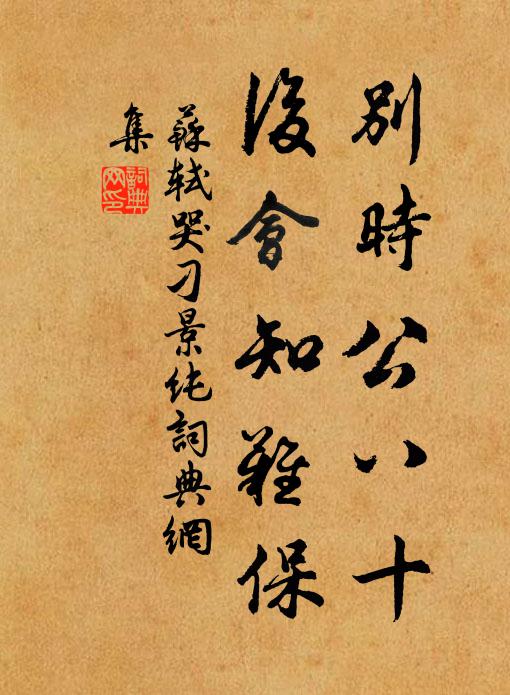 別時公八十
後會知難保
蘇軾哭刁景純詞典網
集
詞典網印